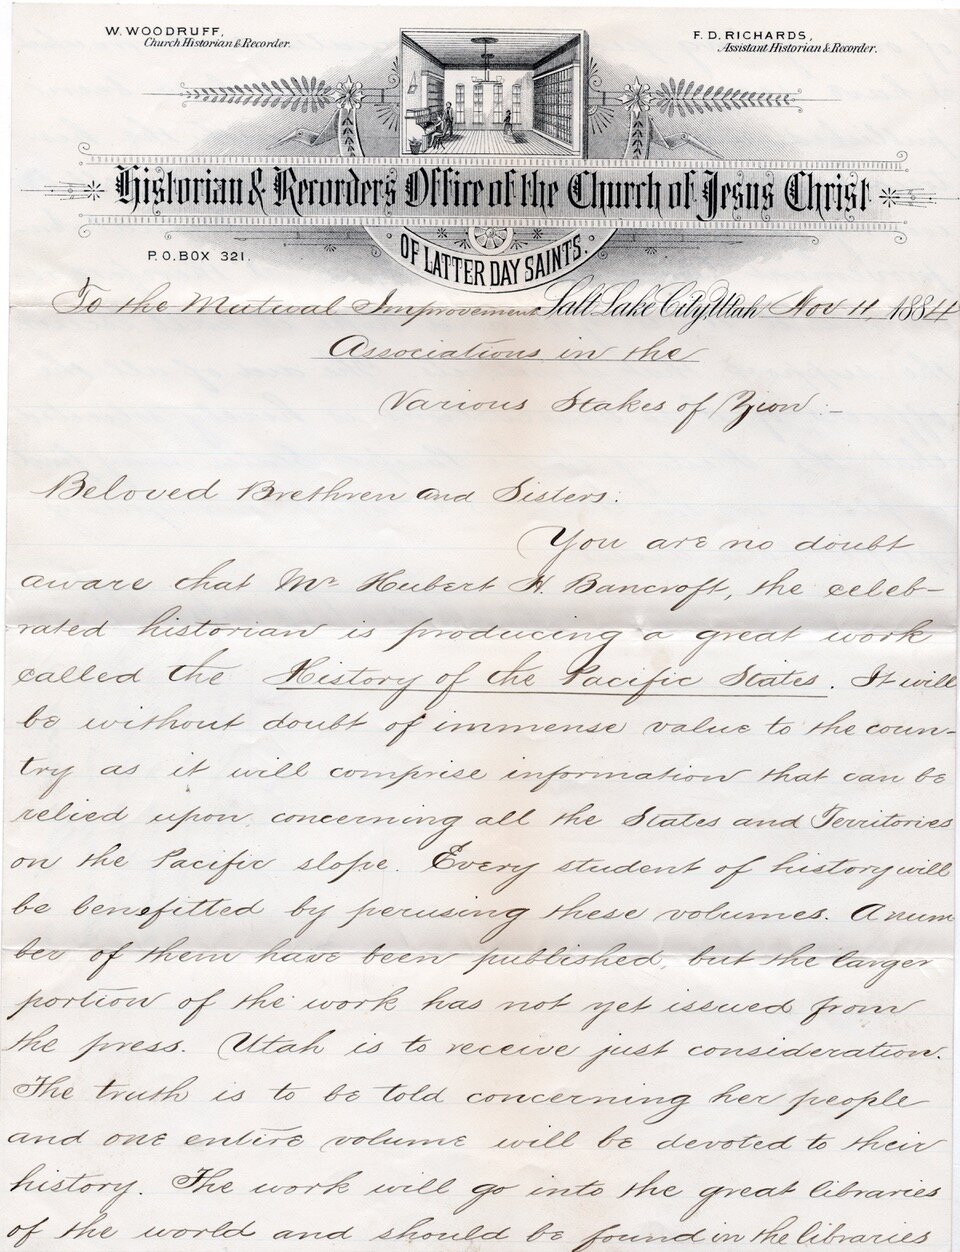 W. WOODRUFF,
Church Historian & Recorder.
F. D. RICHARDS,
Assistant Historian & Recorder.
Historian & Recorder's Office of the Church of Jesus Christ
OF LATTER DAY SAINTS.
P.O. BOX 321.
To the Mutual Improvement Salt Lake City, Utah Nov 11, 1884
Associations in the
Various Stakes of Zion.—
Beloved Brethren and Sisters:
You are no doubt
aware that Mr Hubert H. Bancroft, the celeb-
rated historian is producing a great work
called the History of the Pacific States. It will
be without doubt of immense value to the coun-
try as it will comprise information that can be
relied upon concerning all the States and Territories
on the Pacific slope. Every student of history will
be benefitted by perusing these volumes. A num
ber of them have been published, but the larger
portion of the work has not yet issued from
the press. Utah is to receive just consideration.
The truth is to be told concerning her people
and one entire volume will be devoted to their
history. The work will go into the great libraries
of the world and should be found in the libraries